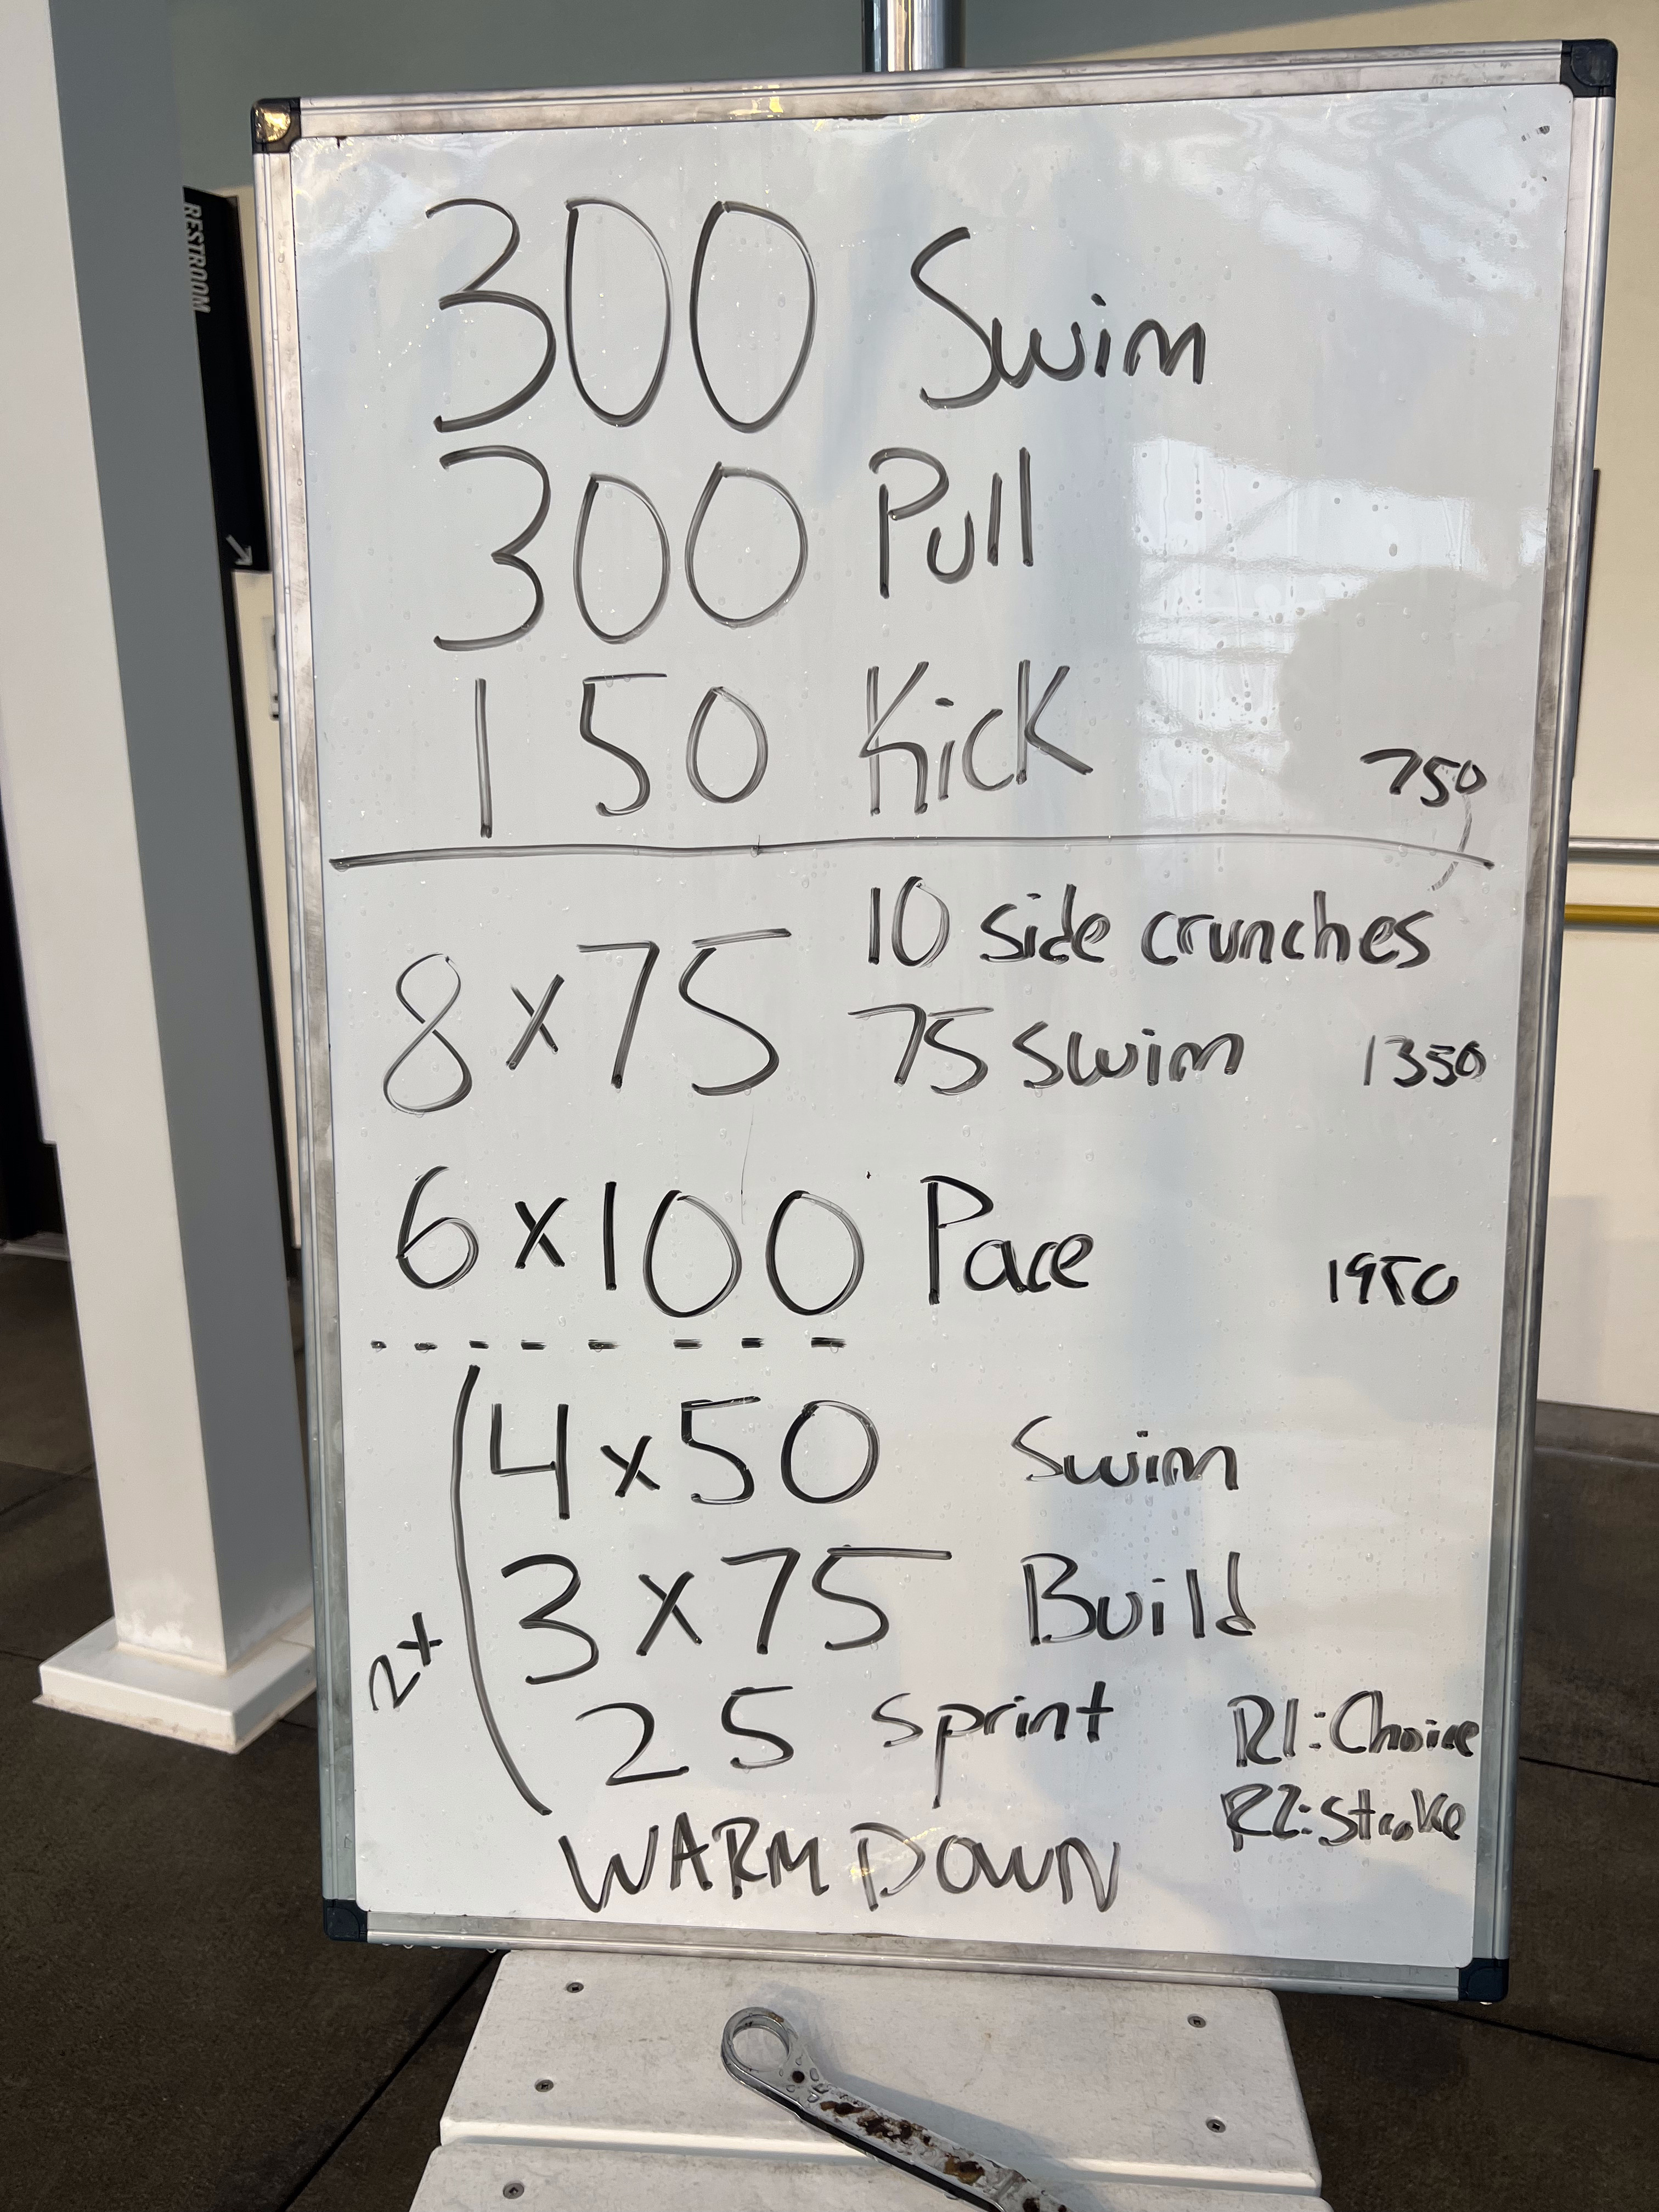 RESTROOM
300 Swim
300 Pull
150 Kick 750
8x75 10 side crunches
75 swim 1350
6x100 Pace 1950
4x50 Swim
3x75 Build
2x
25 sprint R1:Choice
R2:Stroke
WARM DOWN